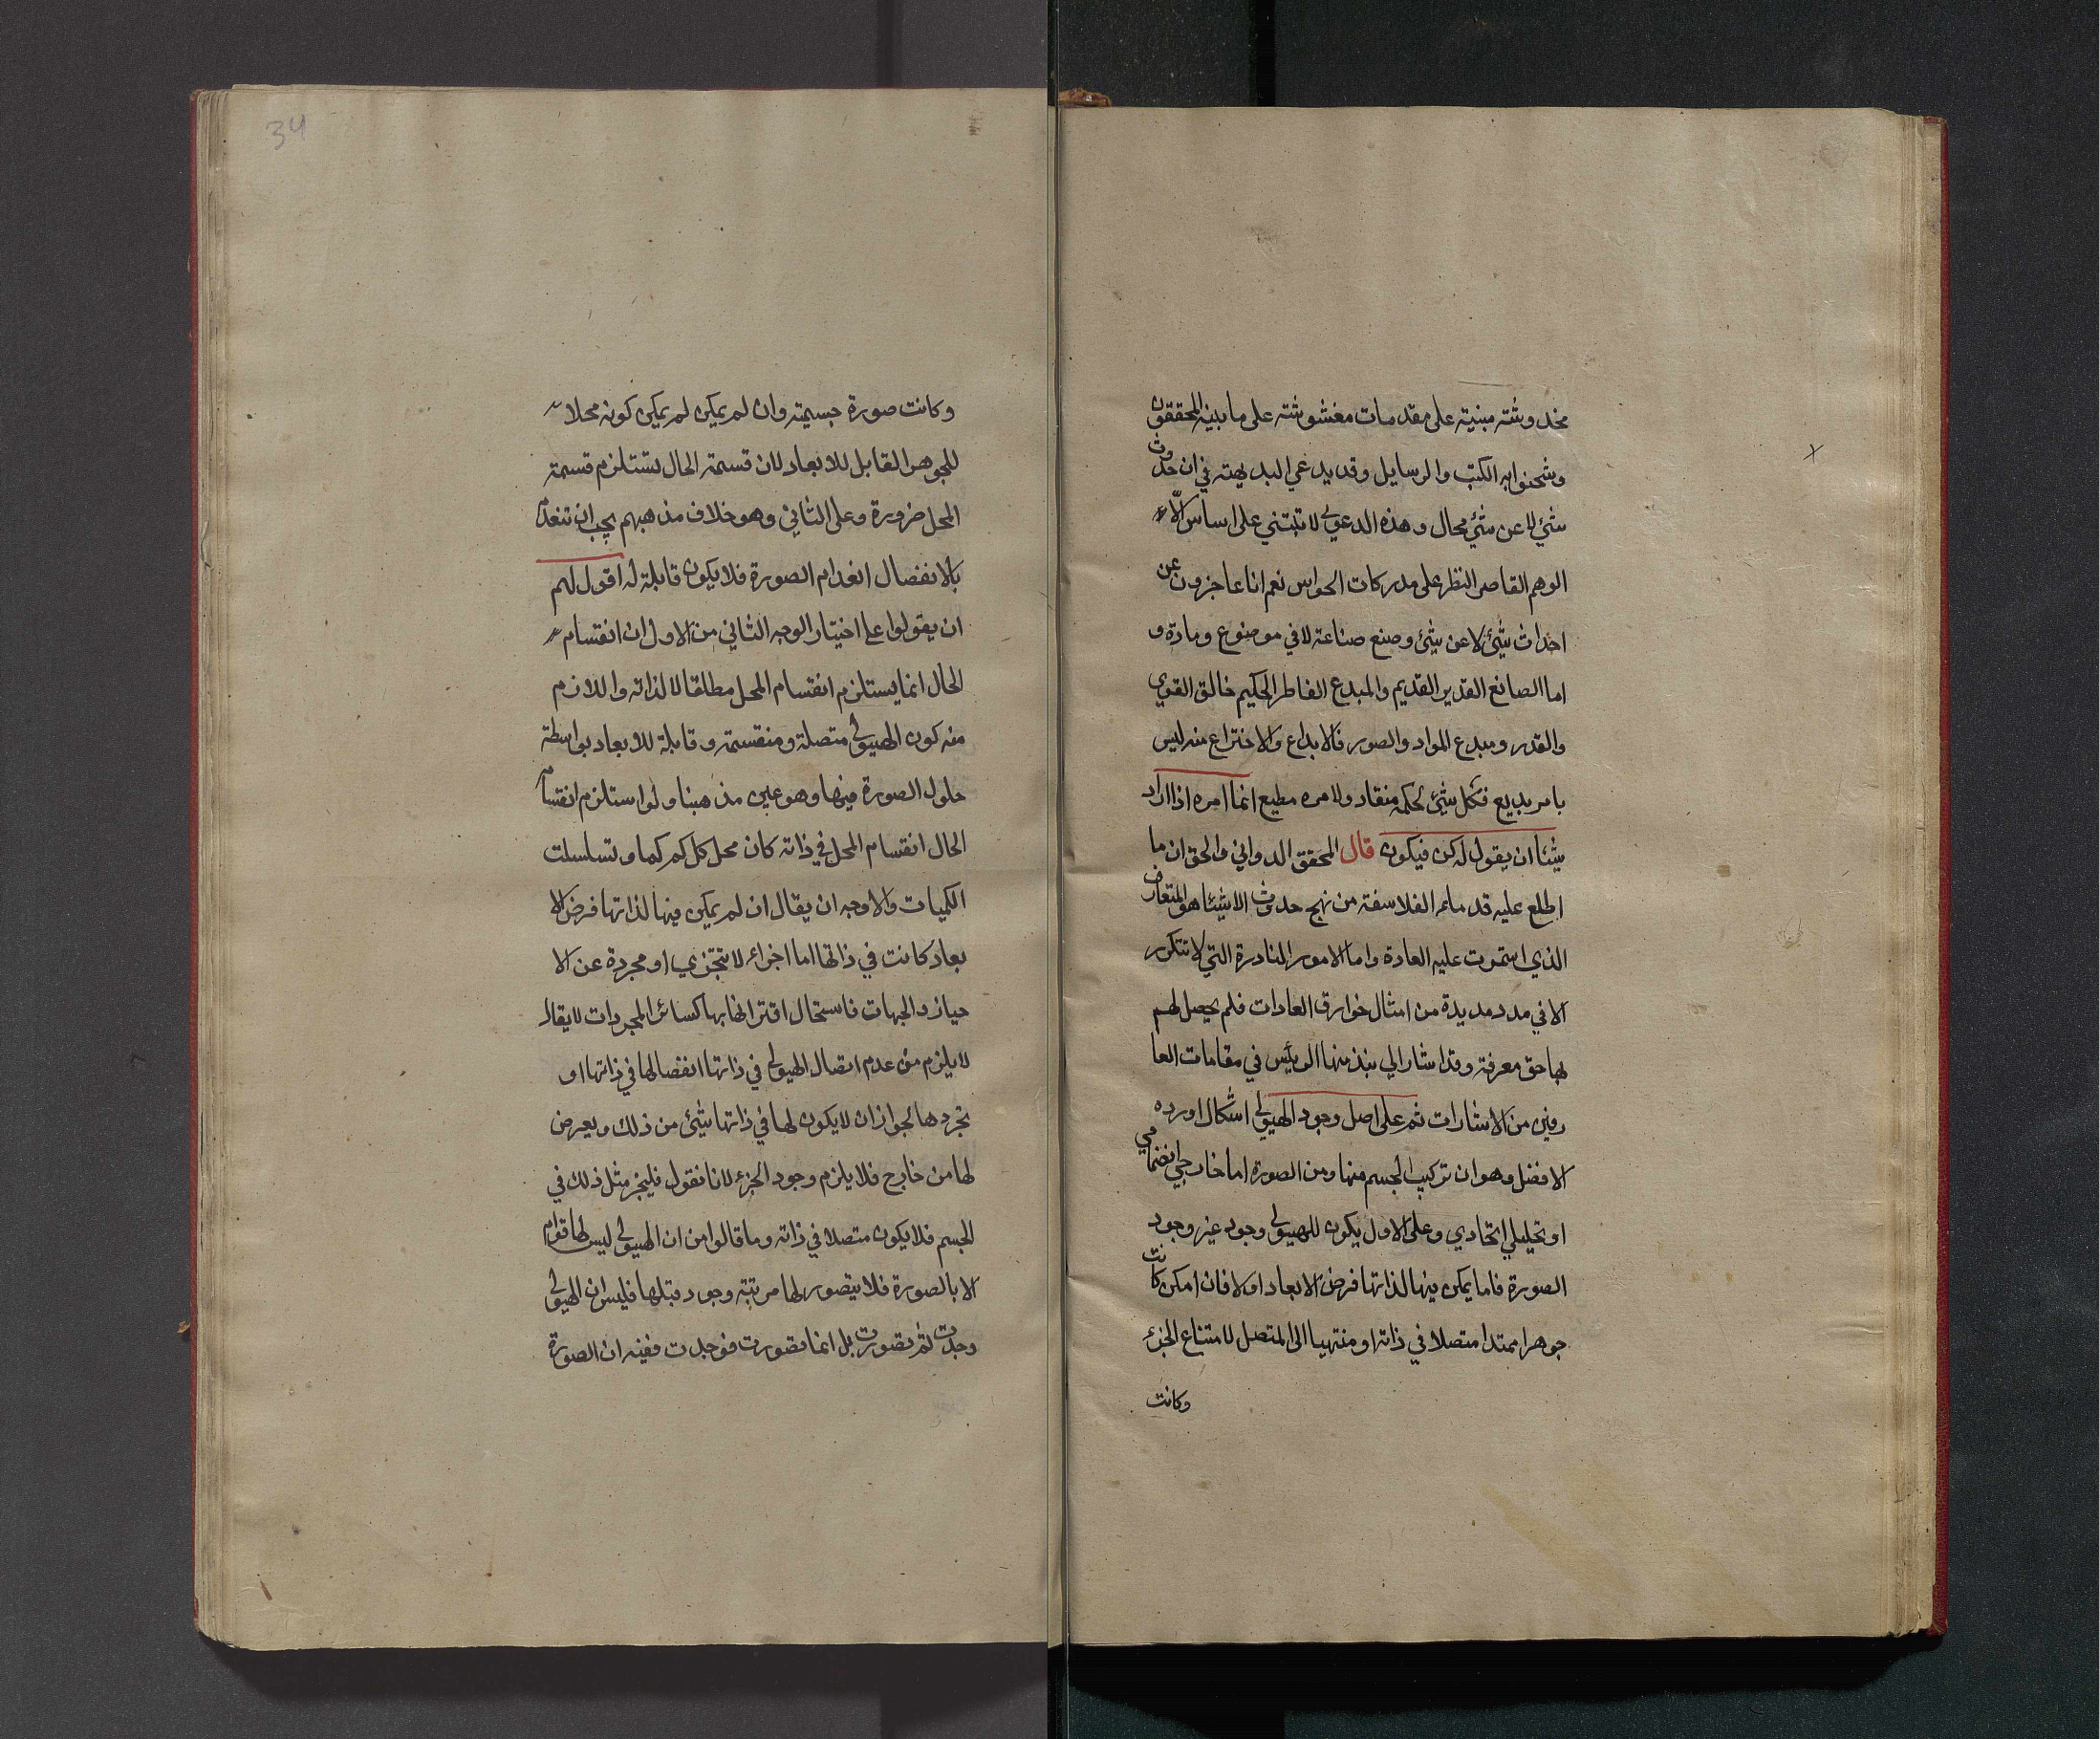 مخدوشته مبنية على مقدمات مغشوشته على ما بينه المحققون
وشحنوا به الكتب والرسايل وقد يدعي البديهته في ان حدوث
شئ لا عن شئ محال وهذه الدعوى لا تبتني على اساس الا
الوهم القاصر النظر على مدركات الحواس نعم انا عاجزون عن
احداث شئ لا عن شئ وصنع صناعة لا في موضوع ومادة و
اما الصانع القدير القديم والمبدع الفاطر الحكيم خالق القوي
والقدر ومبدع المواد والصور فالابداع والاختراع منه ليس
بامر بديع فكل شئ لحكمه منقاد ولامره مطيع انما امره اذا اراد
شيئا ان يقول له كن فيكون قال المحقق الدواني والحق ان ما
اطلع عليه قدماء الفلاسفة من نهج حدوث الاشيئا هو المتعارف
الذي استمرت عليه العادة واما الامور النادرة التي لا تتكرر
الا في مدد مديدة من امثال خوارق العادات فلم يحصل لهم
لها حق معرفة وقد اشار الي نبذ منها الرئيس في مقامات العا
رفين من الاشارات ثم على اصل وجود الهيولى اشكال اورده
الافضل وهو ان تركيب الجسم منها ومن الصورة اما خارجي انضمامي
او تحليلي اتحادي وعلى الاول يكون للهيولى وجود غير وجود
الصورة فاما يمكن فيها لذاتها فرض الابعاد اولا فان امكن كانت
جوهرا ممتدا متصلا في ذاته او منتهيا الى المتصل لامتناع الجزء
وكانت
34
وكانت صورة جسيمته وان لم يمكن لم يمكن كونه محلا
للجوهر القابل للابعاد لان قسمة الحال تستلزم قسمة
المحل ضرورة وعلى الثاني وهو خلاف مذهبهم يجب ان تنعدم
بالانفضال انعدام الصورة فلا يكون قابلة له اقول لهم
ان يقولوا على اختيار الوجه الثاني من الاول ان انقسام
الحال انما يستلزم انقسام المحل مطلقا لا لذاته واللازم
منه كون الهيولى متصلة ومنقسمة وقابلة للابعاد بواسطة
حلول الصورة فيها وهو عين مذهبنا ولو استلزم انقسام
الحال انقسام المحل في ذاته كان محل كل كم كما وتسلسلت
الكميات والاوجه ان يقال ان لم يمكن فيها لذاتها فرض الا
بعاد كانت في ذاتها اما اجزاء لا تتجزي او مجردة عن الا
حياز والجهات فاستحال اقترانها بها كسائر المجردات لا يقال
لا يلزم من عدم اتصال الهيولى في ذاتها انفصالها في ذاتها او
تجردها لجواز ان لا يكون لها في ذاتها شئ من ذلك ويعرض
لها من خارج فلا يلزم وجود الجزء لانا نقول فليجز مثل ذلك في
الجسم فلا يكون متصلا في ذاته وما قالوا من ان الهيولى ليس لها قوام
الا بالصورة فلا يتصور لها مرتبة وجود قبلها فليس ان الهيولى
وجدت ثم تصورت بل انما تصورت فوجدت ففيه ان الصورة